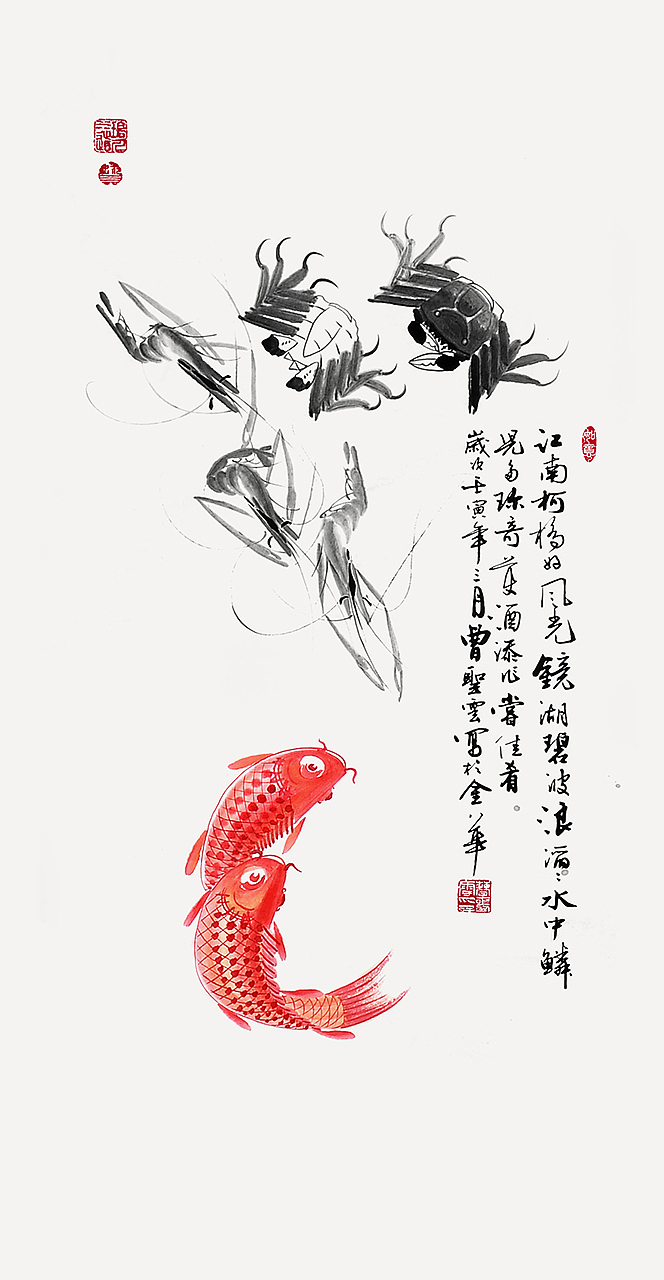 江南柯橋好風光鏡湖碧波浪滔〻水中鱗
兒多珍奇 美酒添作嘗佳肴
歲次壬寅年三月曾聖雲寫於金華